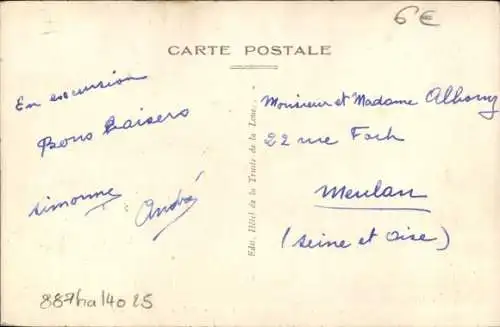 6€
CARTE POSTALE
En excursion
Bons baisers
simonne André
Monsieur et Madame
22 rue Foch
Meulan
(Seine et Oise)
Edit. Hôtel de la Truite de la Loue.
887ha/4025